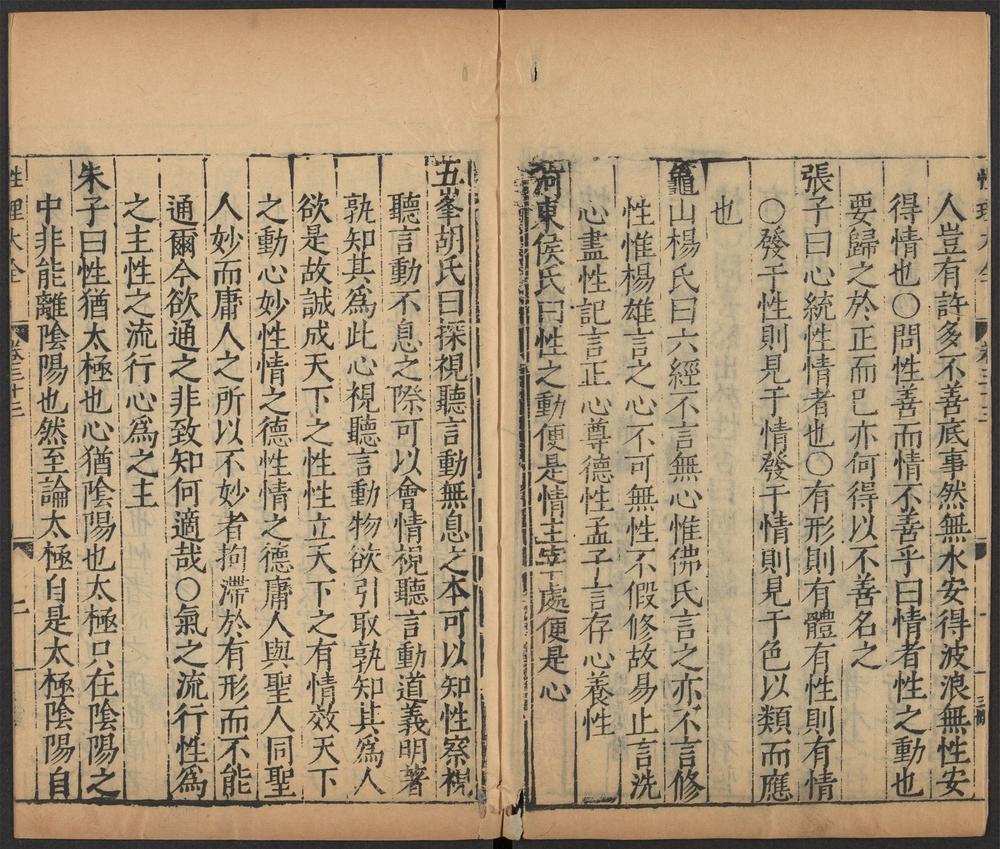 人豈有許多不善底事然無水安得波浪無性安
得情也○問性善而情不善乎曰情者性之動也
要歸之於正而已亦何得以不善名之
張子曰心統性情者也○有形則有體有性則有情
○發于性則見于情發于情則見于色以類而應
也
龜山楊氏曰六經不言無心惟佛氏言之亦不言修
性惟楊雄言之心不可無性不假修故易止言洗
心盡性記言正心尊德性孟子言存心養性
河東侯氏曰性之動便是情主宰處便是心
五峯胡氏曰探視聽言動無息之本可以知性察視
聽言動不息之際可以會情視聽言動道義明著
孰知其為此心視聽言動物欲引取孰知其為人
欲是故誠成天下之性性立天下之有情效天下
之動心妙性情之德性情之德庸人與聖人同聖
人妙而庸人之所以不妙者拘滯於有形而不能
通爾今欲通之非致知何適哉○氣之流行性為
之主性之流行心為之主
朱子曰性猶太極也心猶陰陽也太極只在陰陽之
中非能離陰陽也然至論太極自是太極陰陽自
性理大全 卷三十三 二